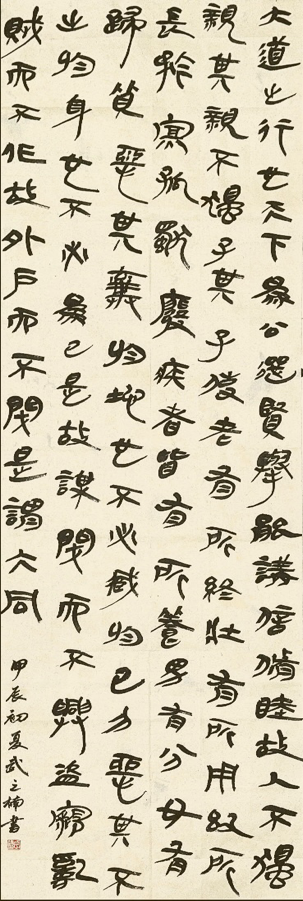 大道之行也天下為公選賢舉能講信脩睦故人不獨
親其親不獨子其子使老有所終壯有所用幼所
長矜寡孤獨廢疾者皆有所養男有分女有
歸貨惡其棄於地也不必藏於己力惡其不
出於身也不必為己是故謀閉而不興盜竊亂
賊而不作故外戶而不閉是謂大同
甲辰初夏武之楠書